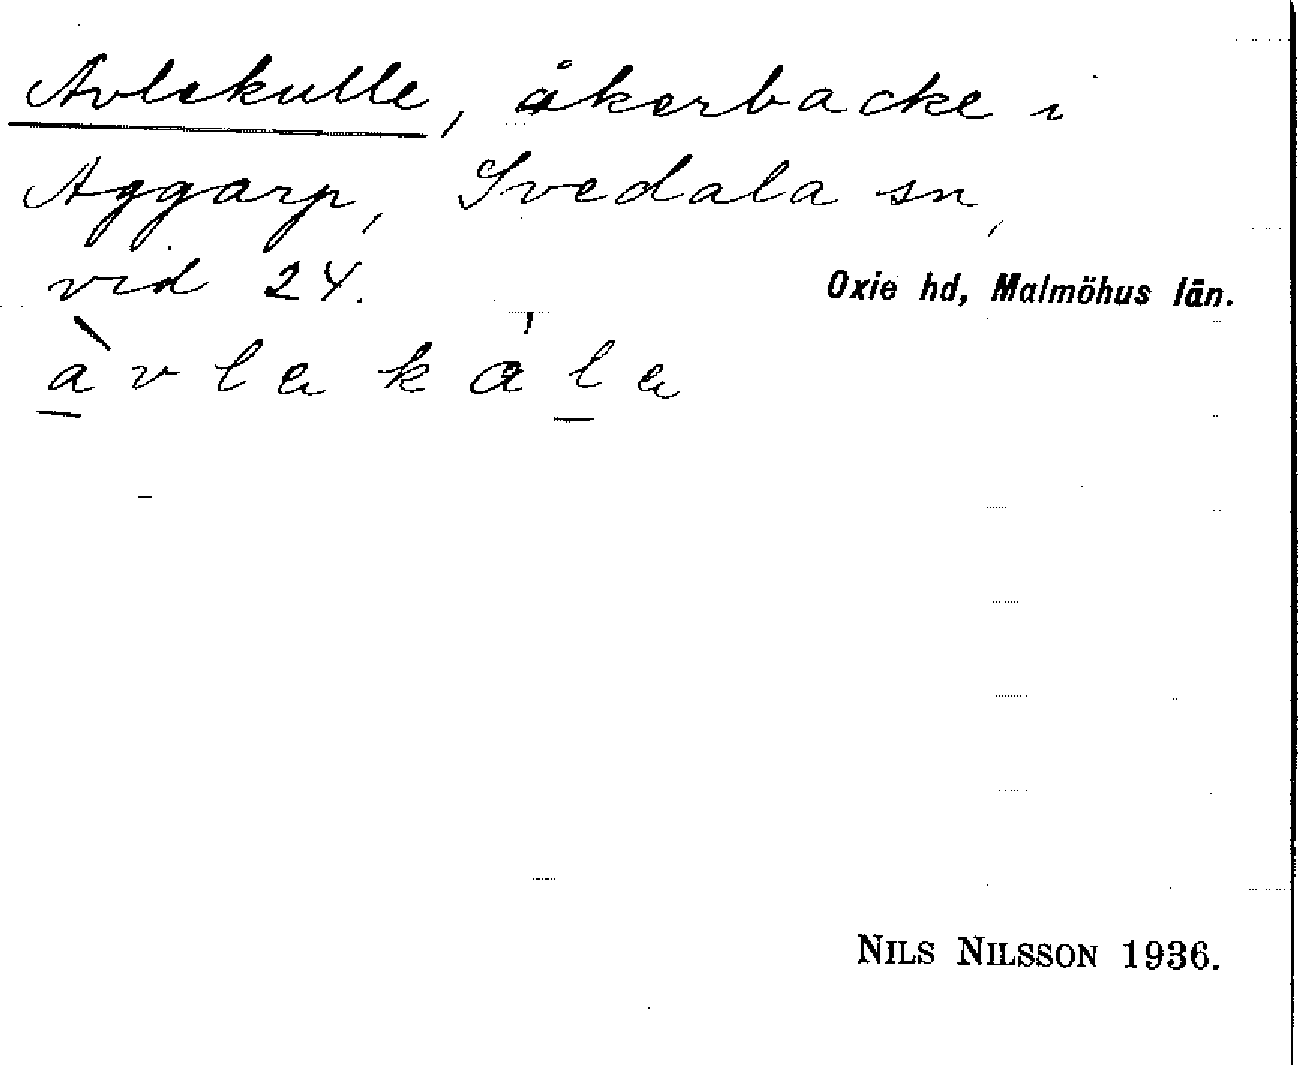 Avlekulle, åkerbacke i
Aggarp, Svedala sn,
vid 24.
Oxie hd, Malmöhus län.
NILS NILSSON 1936.